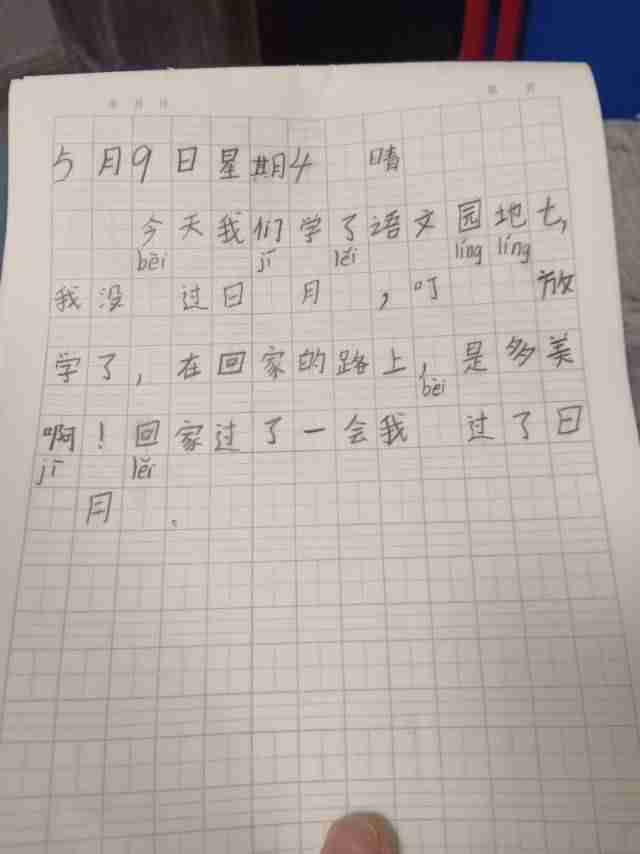 5月9日星期4 晴
今天我们学了语文园地七,
bēi jī lěi líng líng
我没 过日 月 ,叮 放
学了,在回家的路上,是多美
bèi
啊!回家过了一会我 过了日
jī lěi
月 。